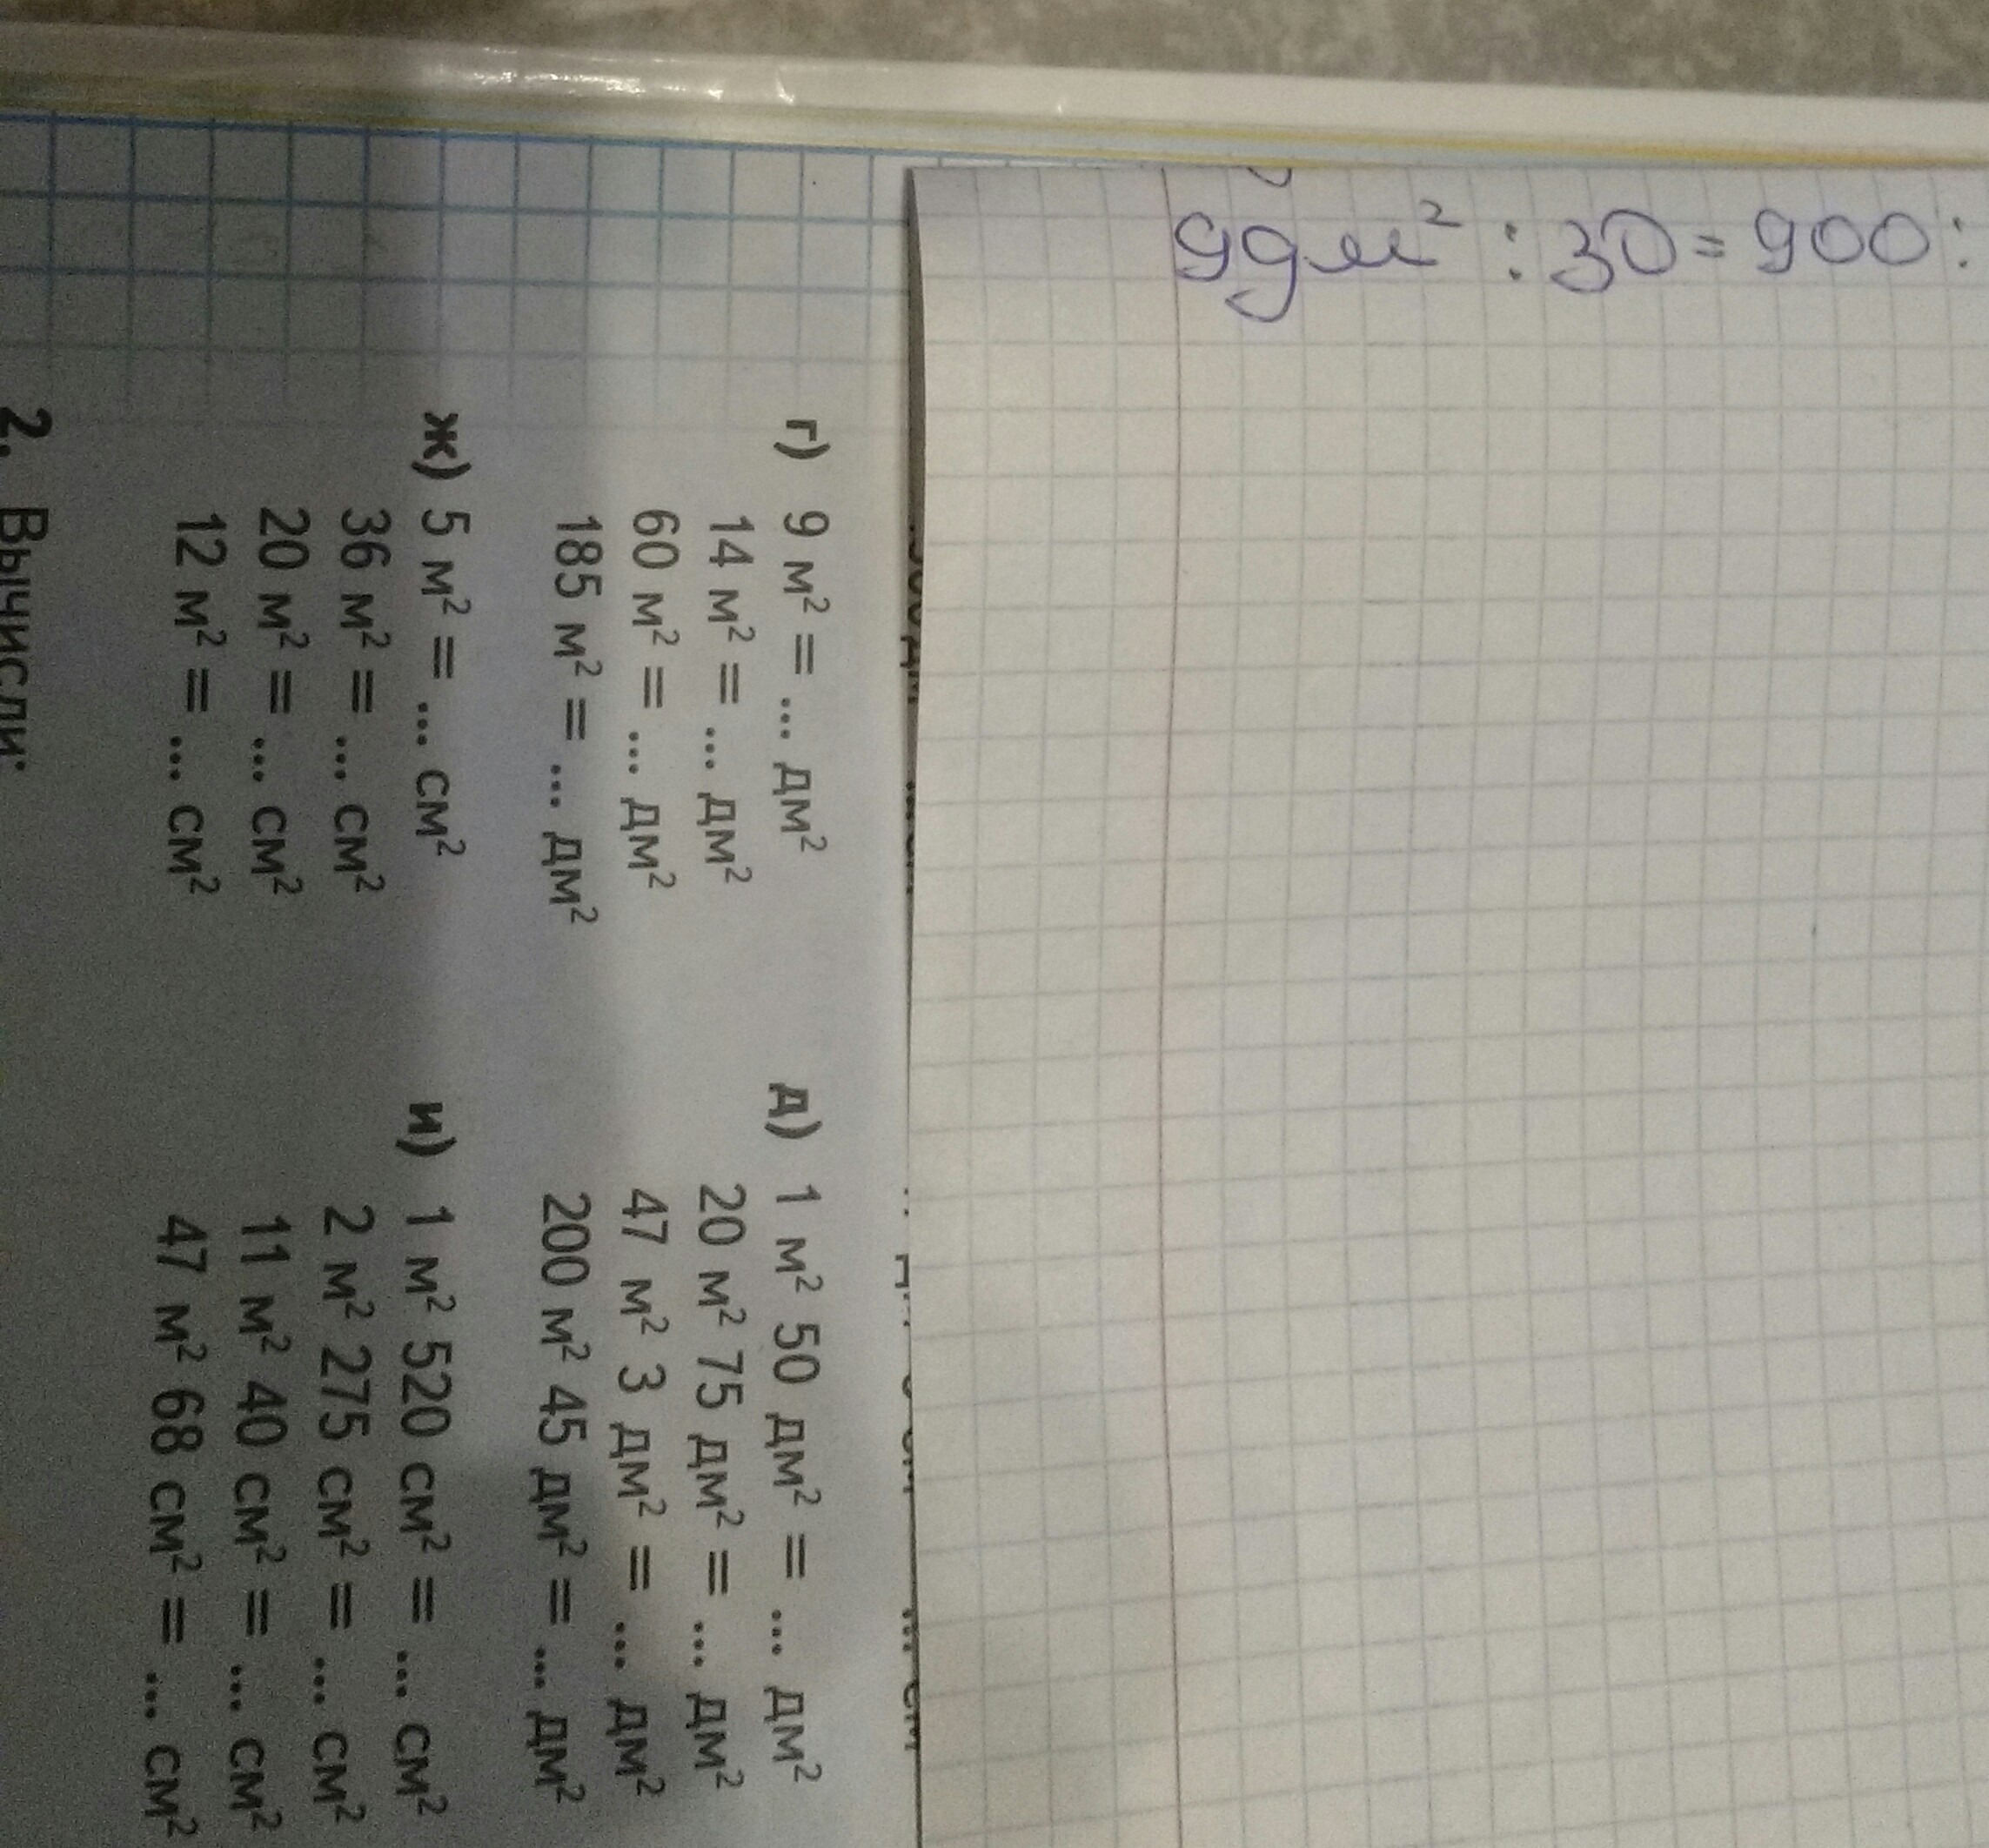 9 дм² : 30 = 900 :
г) 9 м² = ... дм²
14 м² = ... дм²
60 м² = ... дм²
185 м² = ... дм²
д) 1 м² 50 дм² = ... дм²
20 м² 75 дм² = ... дм²
47 м² 3 дм² = ... дм²
200 м² 45 дм² = ... дм²
ж) 5 м² = ... см²
36 м² = ... см²
20 м² = ... см²
12 м² = ... см²
и) 1 м² 520 см² = ... см²
2 м² 275 см² = ... см²
11 м² 40 см² = ... см²
47 м² 68 см² = ... см²
2. Вычисли: